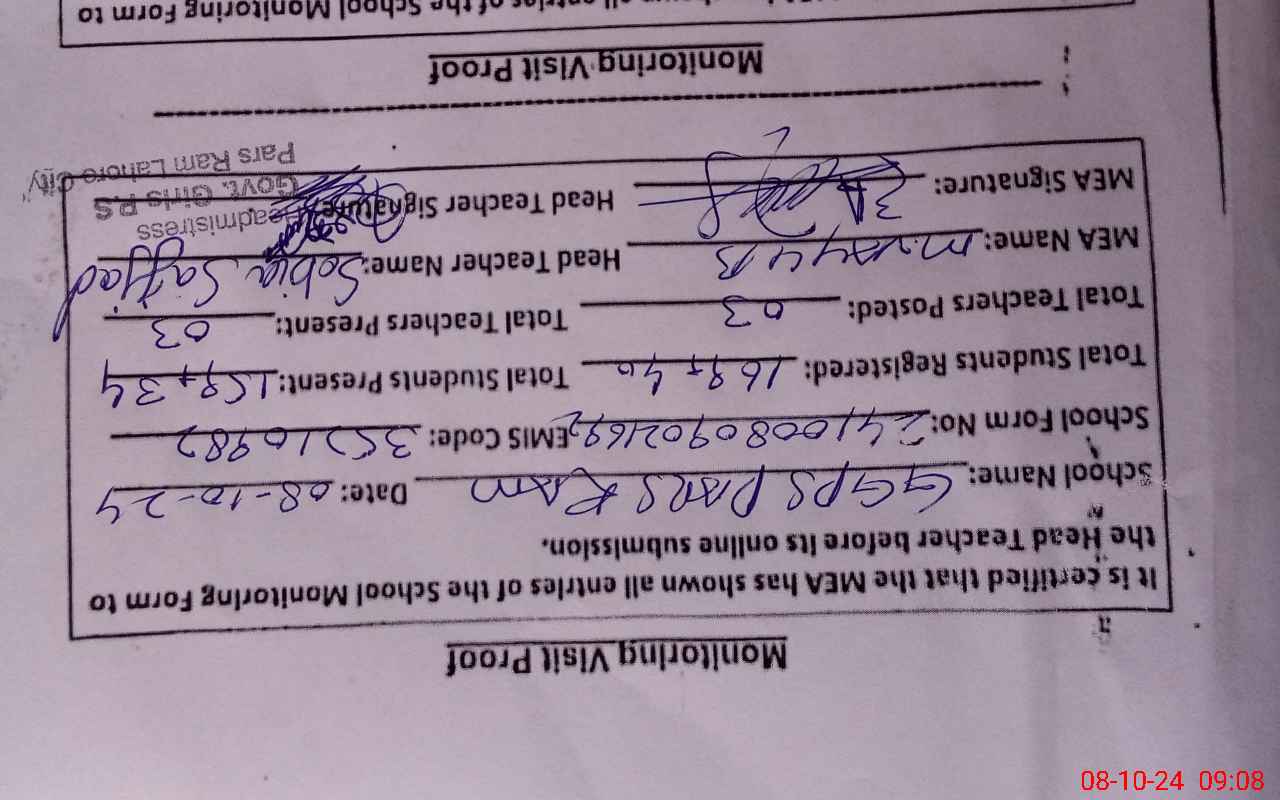 Monitoring Visit Proof
It is certified that the MEA has shown all entries of the School Monitoring Form to
the Head Teacher before its online submission.
School Name: GGPS PARS RAM Date: 08-10-24
School Form No: 2410080902169 EMIS Code: 35210982
Total Students Registered: 169+40 Total Students Present: 159+34
Total Teachers Posted: 03 Total Teachers Present: 03
MEA Name: Head Teacher Name: Sobia Sajjad
MEA Signature: Head Teacher Signature:
Headmistress
Govt. Girls P.S
Pars Ram Lahore City
Monitoring Visit Proof
all entries of the School Monitoring Form to
08-10-24 09:08